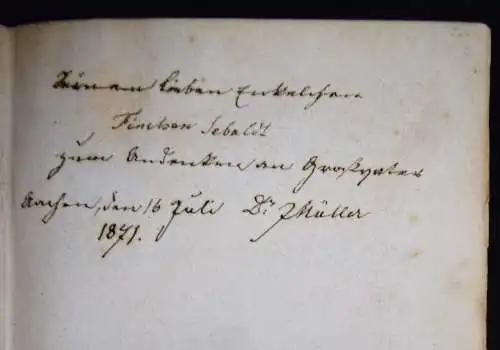 Seinen lieben Enkelchen
Finchen Sebaldt
zum Andenken an Großvater
Aachen, den 16 Juli Dr. J Müller
1871.